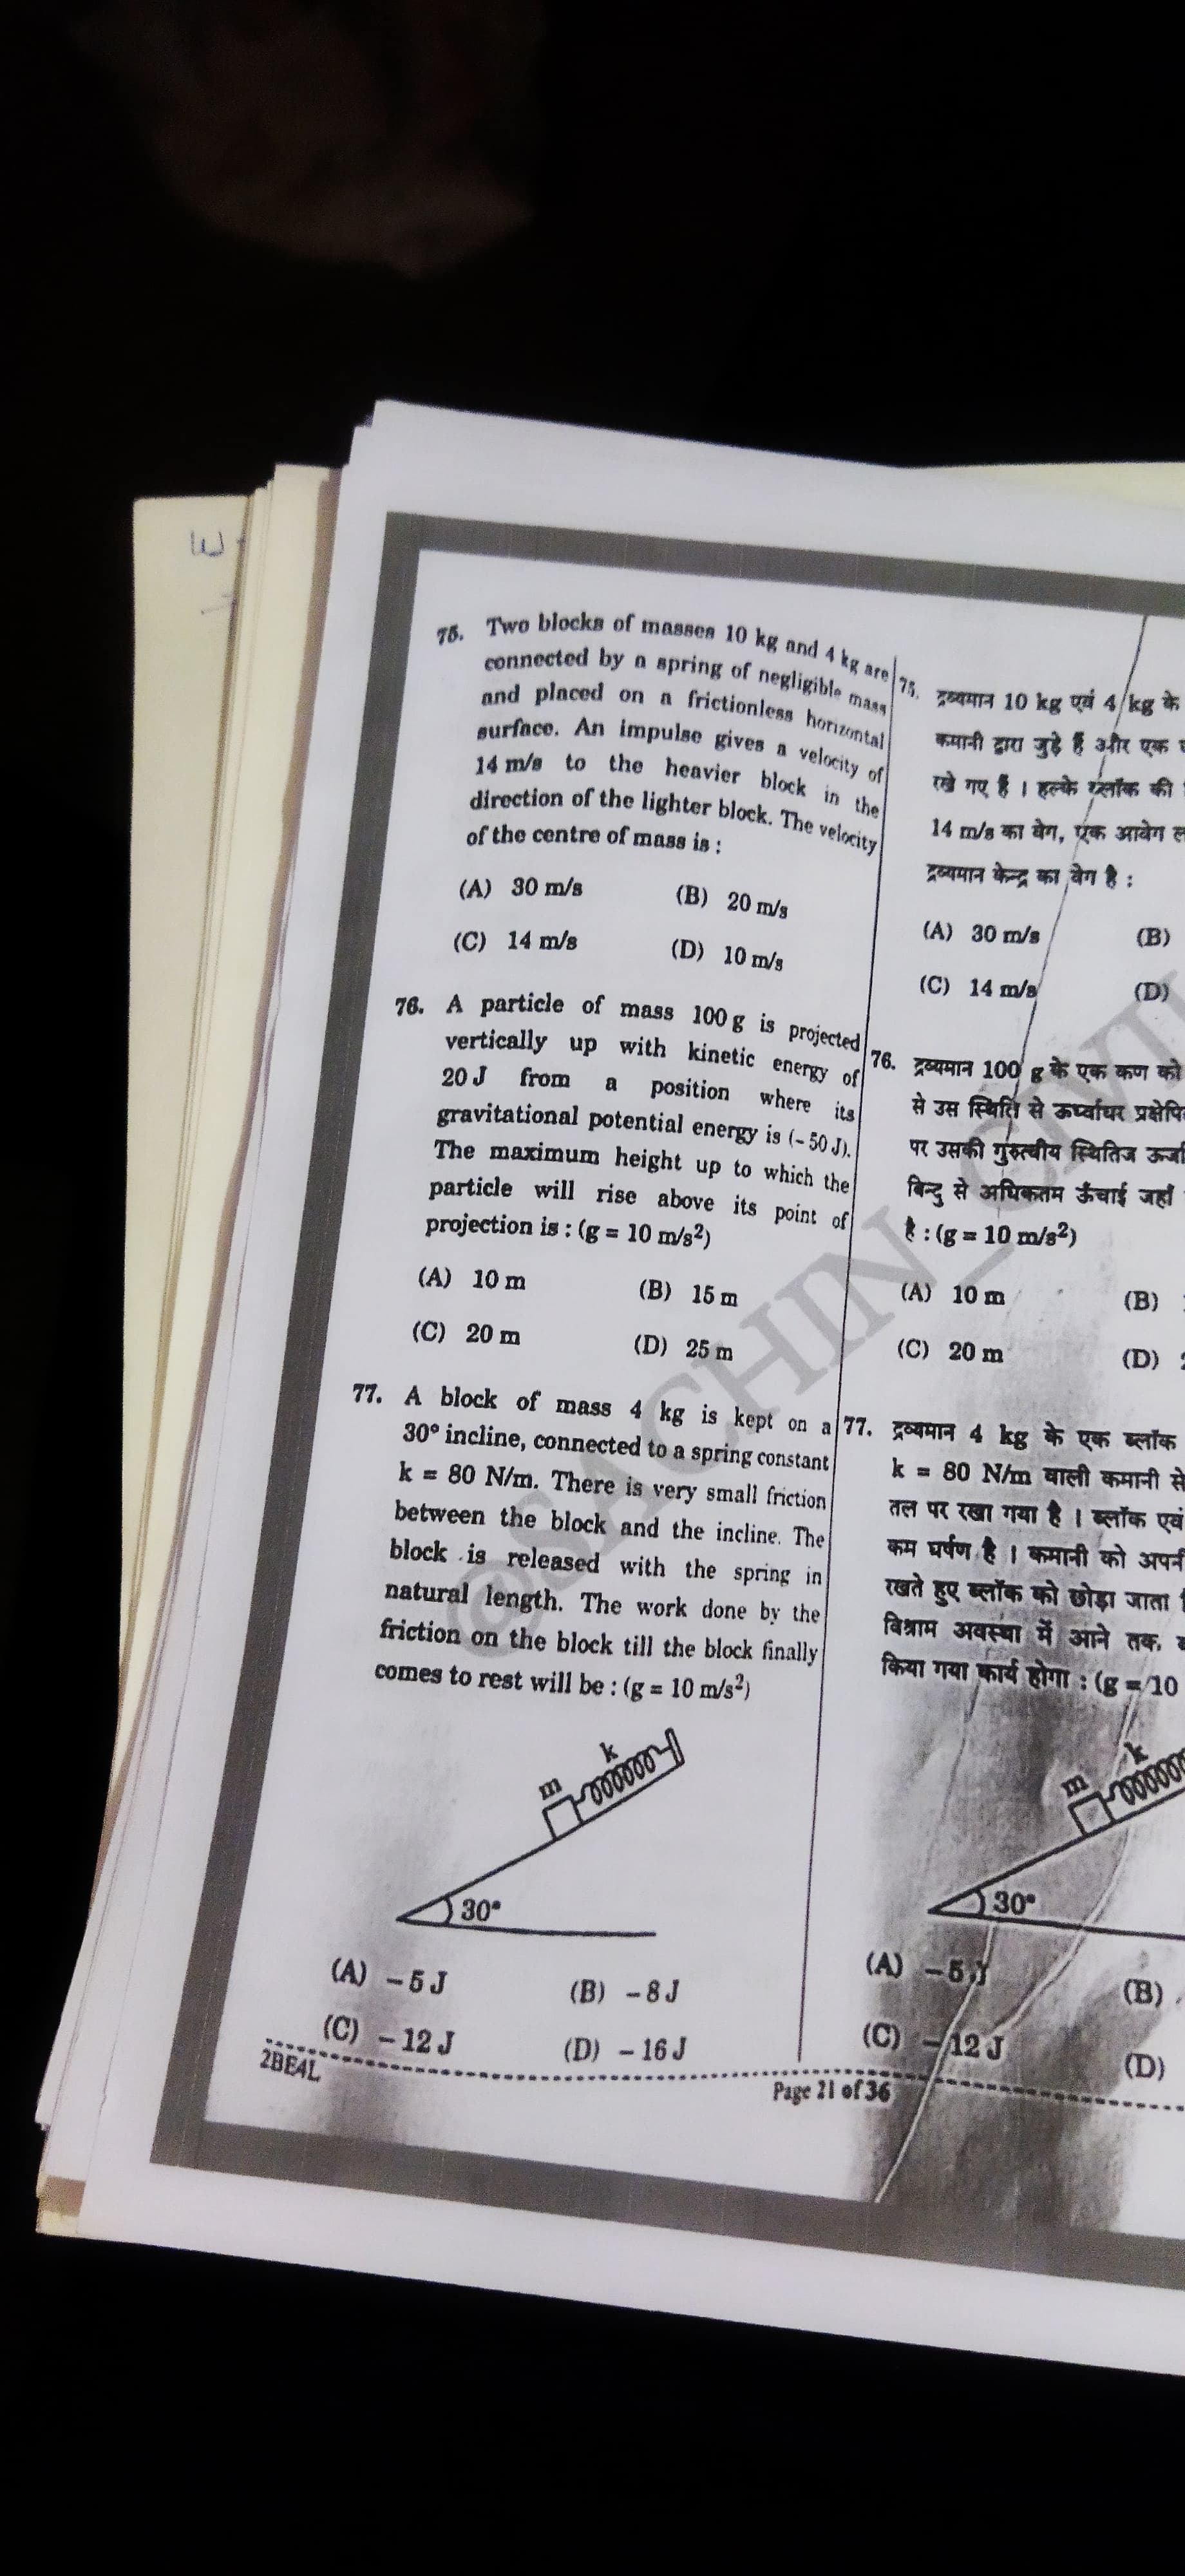 W
75. Two blocks of masses 10 kg and 4 kg are
connected by a spring of negligible mass
and placed on a frictionless horizontal
surface. An impulse gives a velocity of
14 m/s to the heavier block in the
direction of the lighter block. The velocity
of the centre of mass is :
(A) 30 m/s (B) 20 m/s
(C) 14 m/s (D) 10 m/s
76. A particle of mass 100 g is projected
vertically up with kinetic energy of
20 J from a position where its
gravitational potential energy is (– 50 J).
The maximum height up to which the
particle will rise above its point of
projection is : (g = 10 m/s²)
(A) 10 m (B) 15 m
(C) 20 m (D) 25 m
77. A block of mass 4 kg is kept on a
30° incline, connected to a spring constant
k = 80 N/m. There is very small friction
between the block and the incline. The
block is released with the spring in
natural length. The work done by the
friction on the block till the block finally
comes to rest will be : (g = 10 m/s²)
m k
30°
(A) – 5 J (B) – 8 J
(C) – 12 J (D) – 16 J
75. द्रव्यमान 10 kg एवं 4 kg के
कमानी द्वारा जुड़े हैं और एक
रखे गए हैं । हल्के ब्लॉक की
14 m/s का वेग, एक आवेग
द्रव्यमान केन्द्र का वेग है :
(A) 30 m/s (B)
(C) 14 m/s (D)
76. द्रव्यमान 100 g के एक कण को
से उस स्थिति से ऊर्ध्वाधर
पर उसकी गुरुत्वीय स्थितिज
बिन्दु से अधिकतम ऊँचाई जहाँ
है : (g = 10 m/s²)
(A) 10 m (B)
(C) 20 m (D)
77. द्रव्यमान 4 kg के एक ब्लॉक
k = 80 N/m वाली कमानी से
तल पर रखा गया है । ब्लॉक एवं
कम घर्षण है । कमानी को
रखते हुए ब्लॉक को छोड़ा जाता
विश्राम अवस्था में आने तक
किया गया कार्य होगा : (g = 10
m k
30°
(A) – 5 J (B)
(C) – 12 J (D)
2BE4L Page 21 of 36
@SACHIN_CIVIL